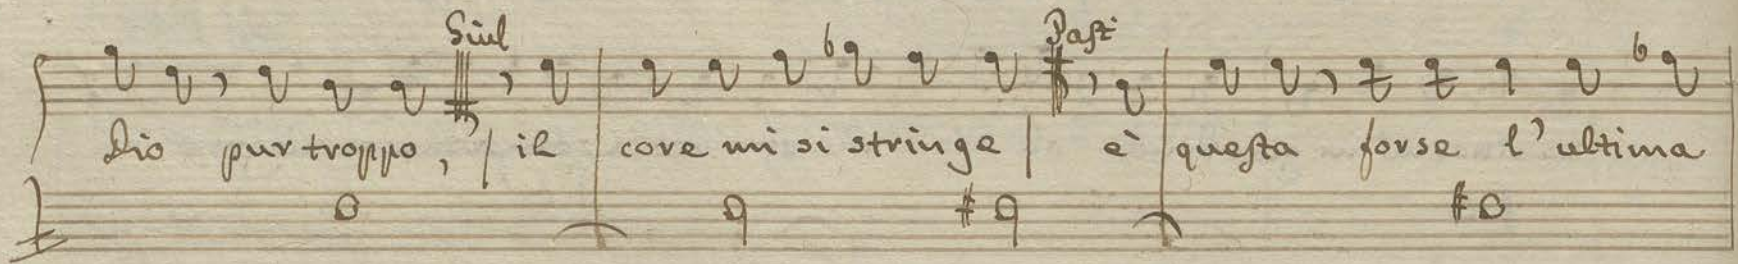 Siul Past
Dio pur troppo, | il core mi si stringe | è questa forse l'ultima